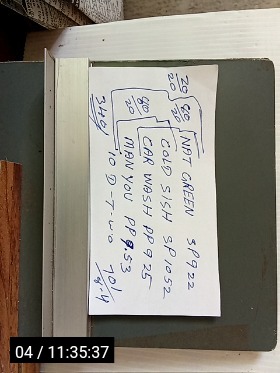 NAT GREEN SP922
COLD SISH SP1052
CAR WASH PP925
MAN YOU PP953
10 D-T-WO 70/
20 80
20
80
20
340/
04 / 11:35:37